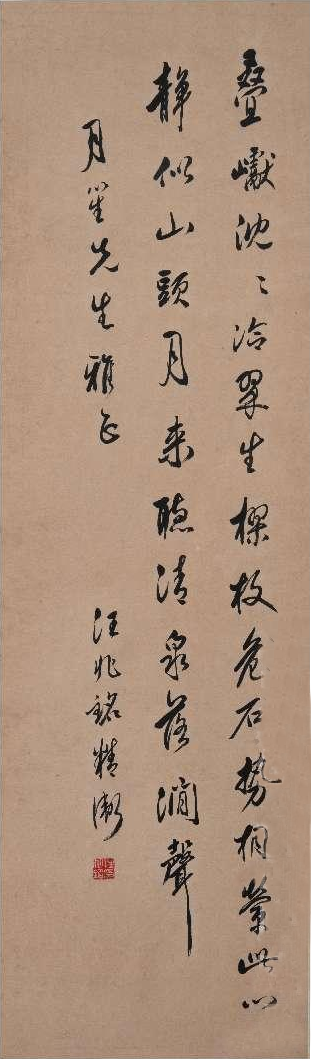 疊巘沈〻冷翠生樛枝危石勢相縈此心
靜似山頭月來聽清泉落澗聲
月笙先生雅正
汪兆銘精衛